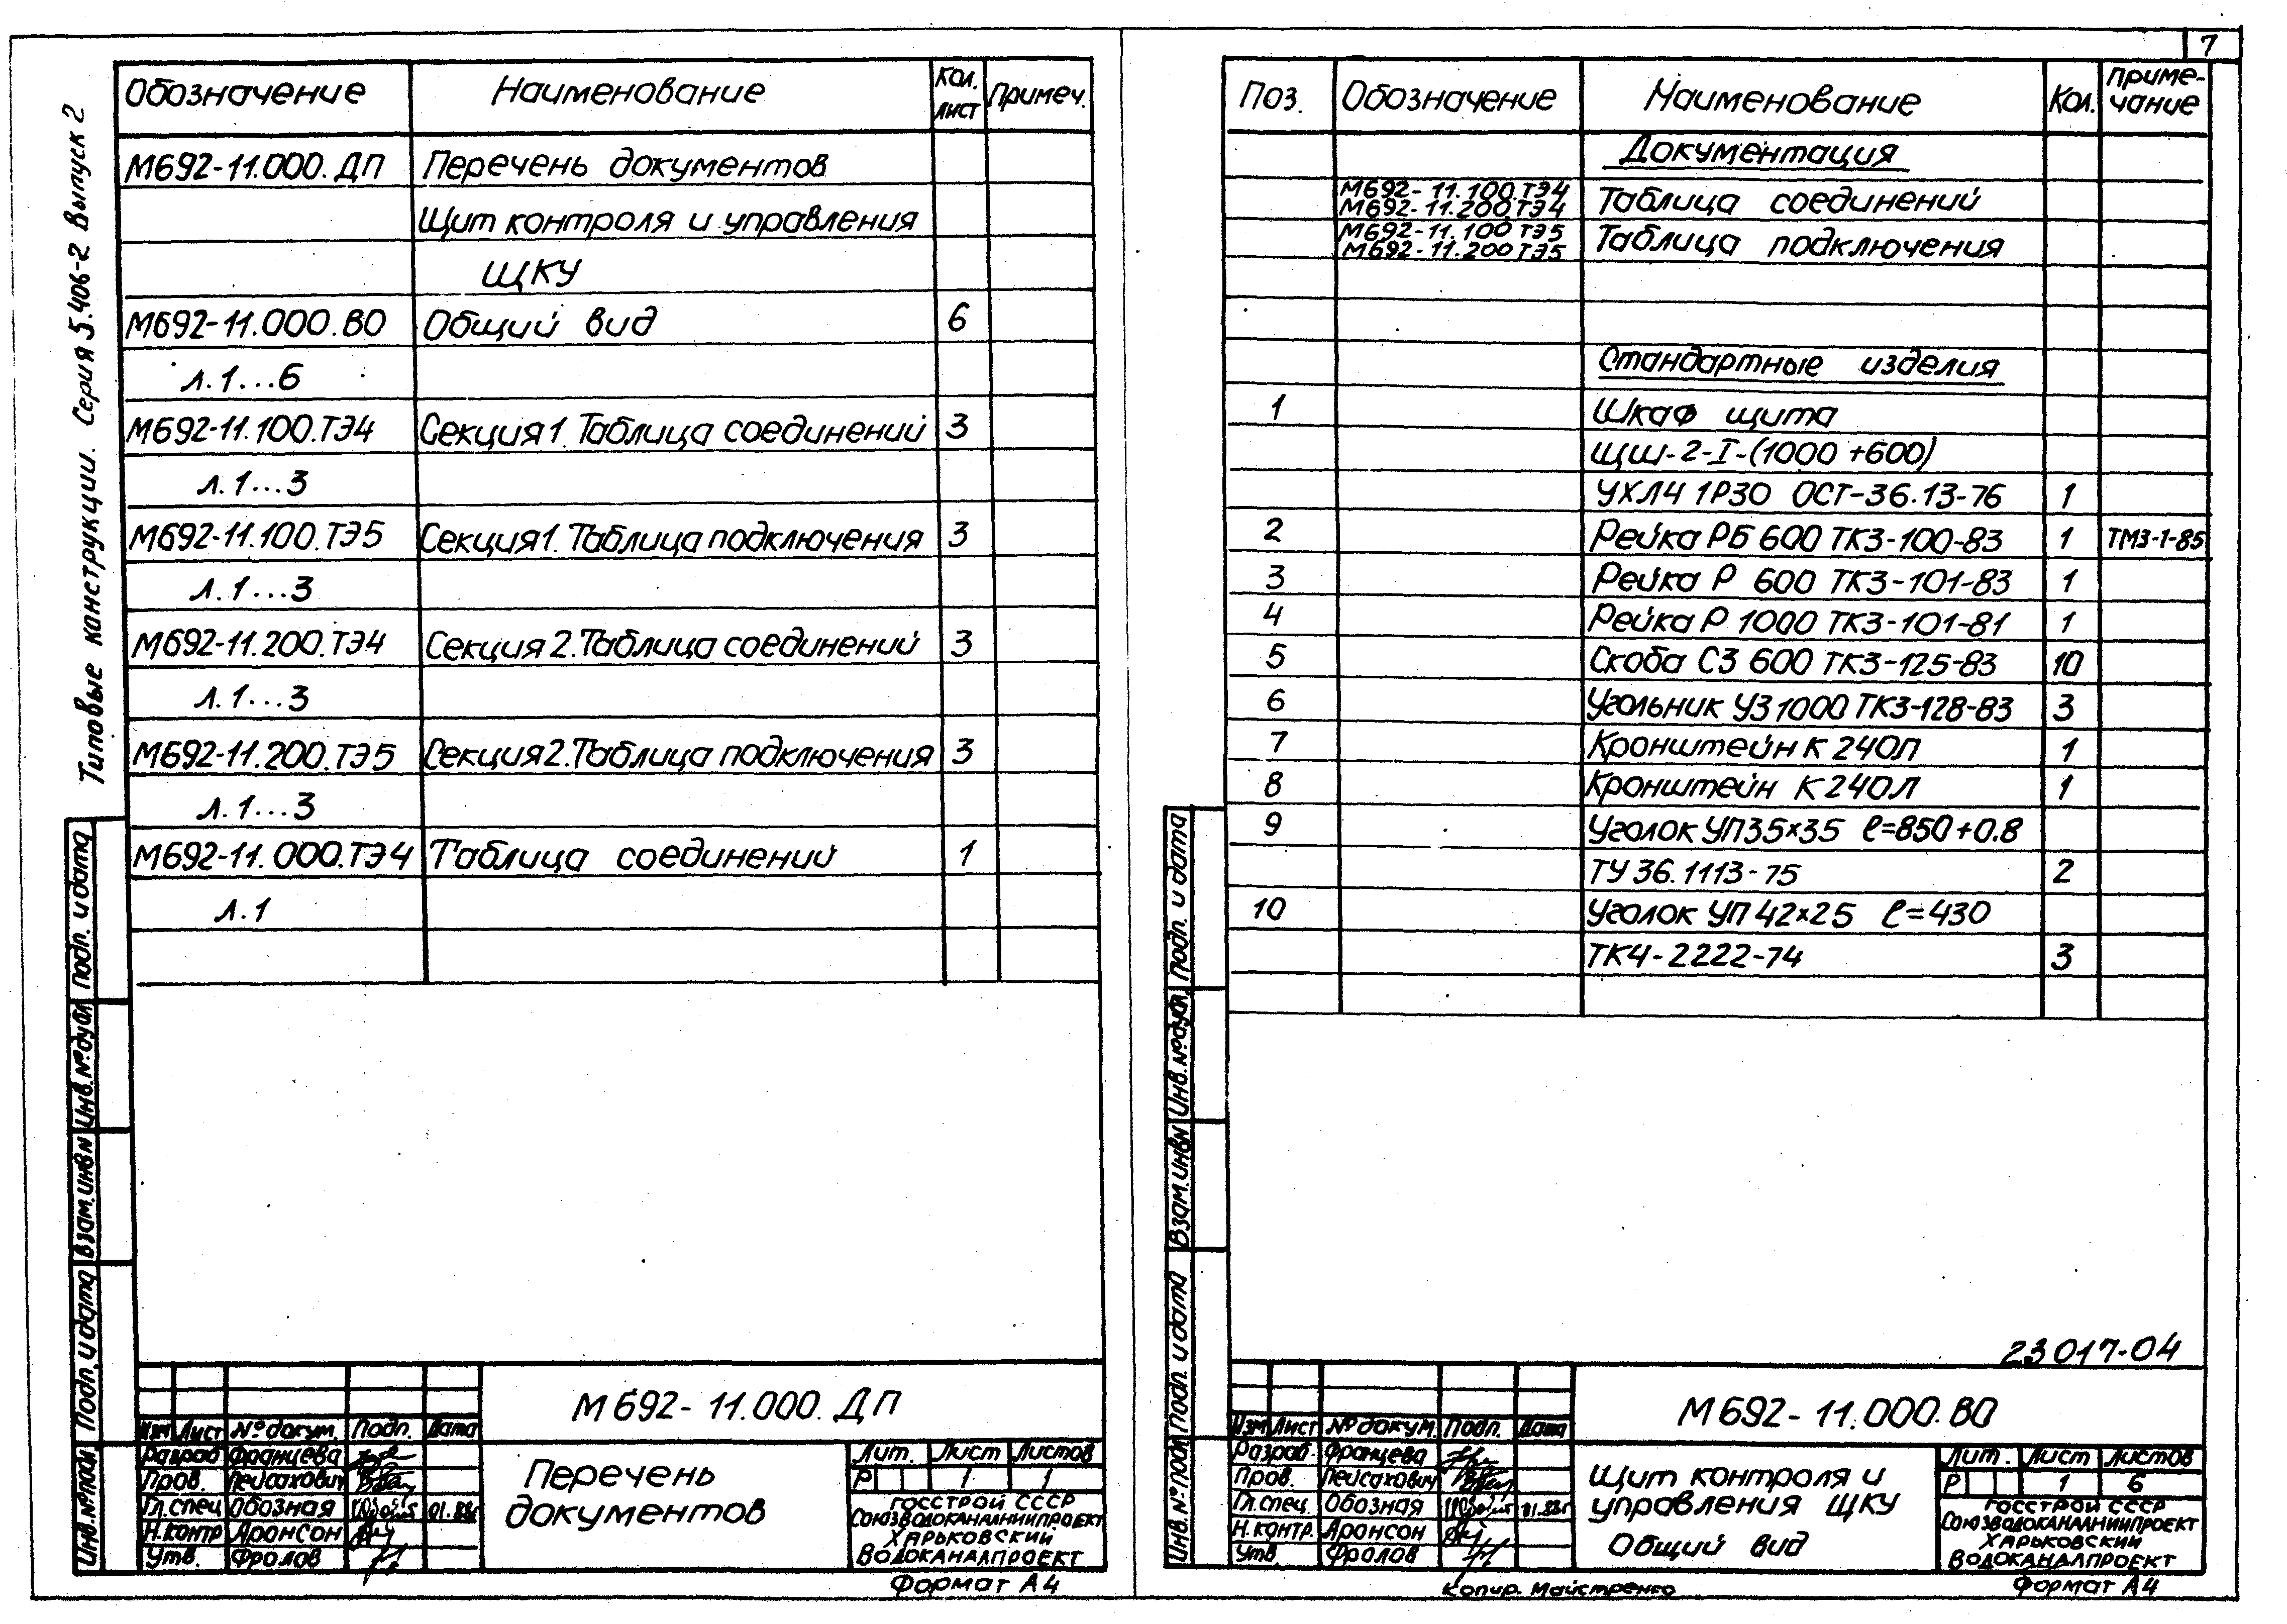 7
Типовые конструкции. Серия 5.406-2 Выпуск 2
Обозначение Наименование Кол. лист Примеч.
М692-11.000.ДП Перечень документов
Щит контроля и управления
ЩКУ
М692-11.000.ВО Общий вид 6
л.1...6
М692-11.100.ТЭ4 Секция1.Таблица соединений 3
л.1...3
М692-11.100.ТЭ5 Секция1.Таблица подключения 3
л.1...3
М692-11.200.ТЭ4 Секция2.Таблица соединений 3
л.1...3
М692-11.200.ТЭ5 Секция2.Таблица подключения 3
л.1...3
М692-11.000.ТЭ4 Таблица соединений 1
л.1
Подп. и дата
Инв.№дубл
Взам.инв№
Подп. и дата
Инв.№подл.
М692-11.000.ДП
Изм Лист №докум. Подп. Дата
Разраб Францева
Пров. Пейсахович
Гл.спец Обозная 01.88г
Н.контр Аронсон
Утв. Фролов
Перечень
документов
Лит. Лист Листов
Р 1 1
ГОССТРОЙ СССР
СОЮЗВОДОКАНАЛНИИПРОЕКТ
ХАРЬКОВСКИЙ
ВОДОКАНАЛПРОЕКТ
Формат А4
Поз. Обозначение Наименование Кол. Приме-
чание
Документация
М692-11.100.ТЭ4
М692-11.200.ТЭ4 Таблица соединений
М692-11.100 ТЭ5
М692-11.200 ТЭ5 Таблица подключения
Стандартные изделия
1 Шкаф щита
ЩШ-2-I-(1000+600)
УХЛ4 1Р30 ОСТ-36.13-76 1
2 Рейка РБ 600 ТК3-100-83 1 ТМ3-1-85
3 Рейка Р 600 ТК3-101-83 1
4 Рейка Р 1000 ТК3-101-81 1
5 Скоба С3 600 ТК3-125-83 10
6 Угольник У3 1000 ТК3-128-83 3
7 Кронштейн К 240П 1
8 Кронштейн К 240Л 1
9 Уголок УП35×35 ℓ=850+0.8
ТУ 36.1113-75 2
10 Уголок УП 42×25 ℓ=430
ТК4-2222-74 3
Подп. и дата
Инв.№дубл.
Взам.инв№
Подп. и дата
Инв.№подл
23017-04
М692-11.000.ВО
Изм Лист №докум. Подп. Дата
Разраб. Францева
Пров. Пейсахович
Гл.спец. Обозная 01.88г
Н.контр. Аронсон
Утв. Фролов
Щит контроля и
управления ЩКУ
Общий вид
Лит. Лист Листов
Р 1 6
ГОССТРОЙ СССР
СОЮЗВОДОКАНАЛНИИПРОЕКТ
ХАРЬКОВСКИЙ
ВОДОКАНАЛПРОЕКТ
Копир. Майстренко
Формат А4